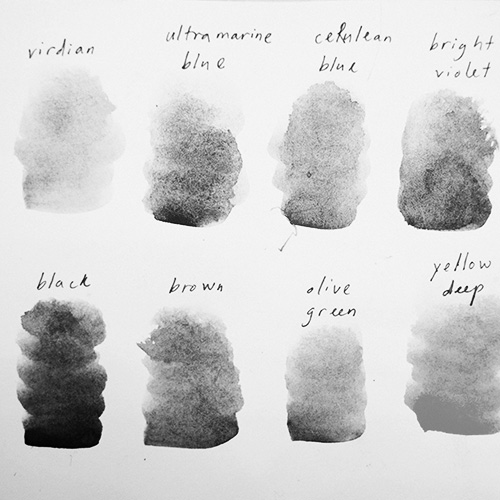 virdian
ultramarine
blue
cerulean
blue
bright
violet
black
brown
olive
green
yellow
deep